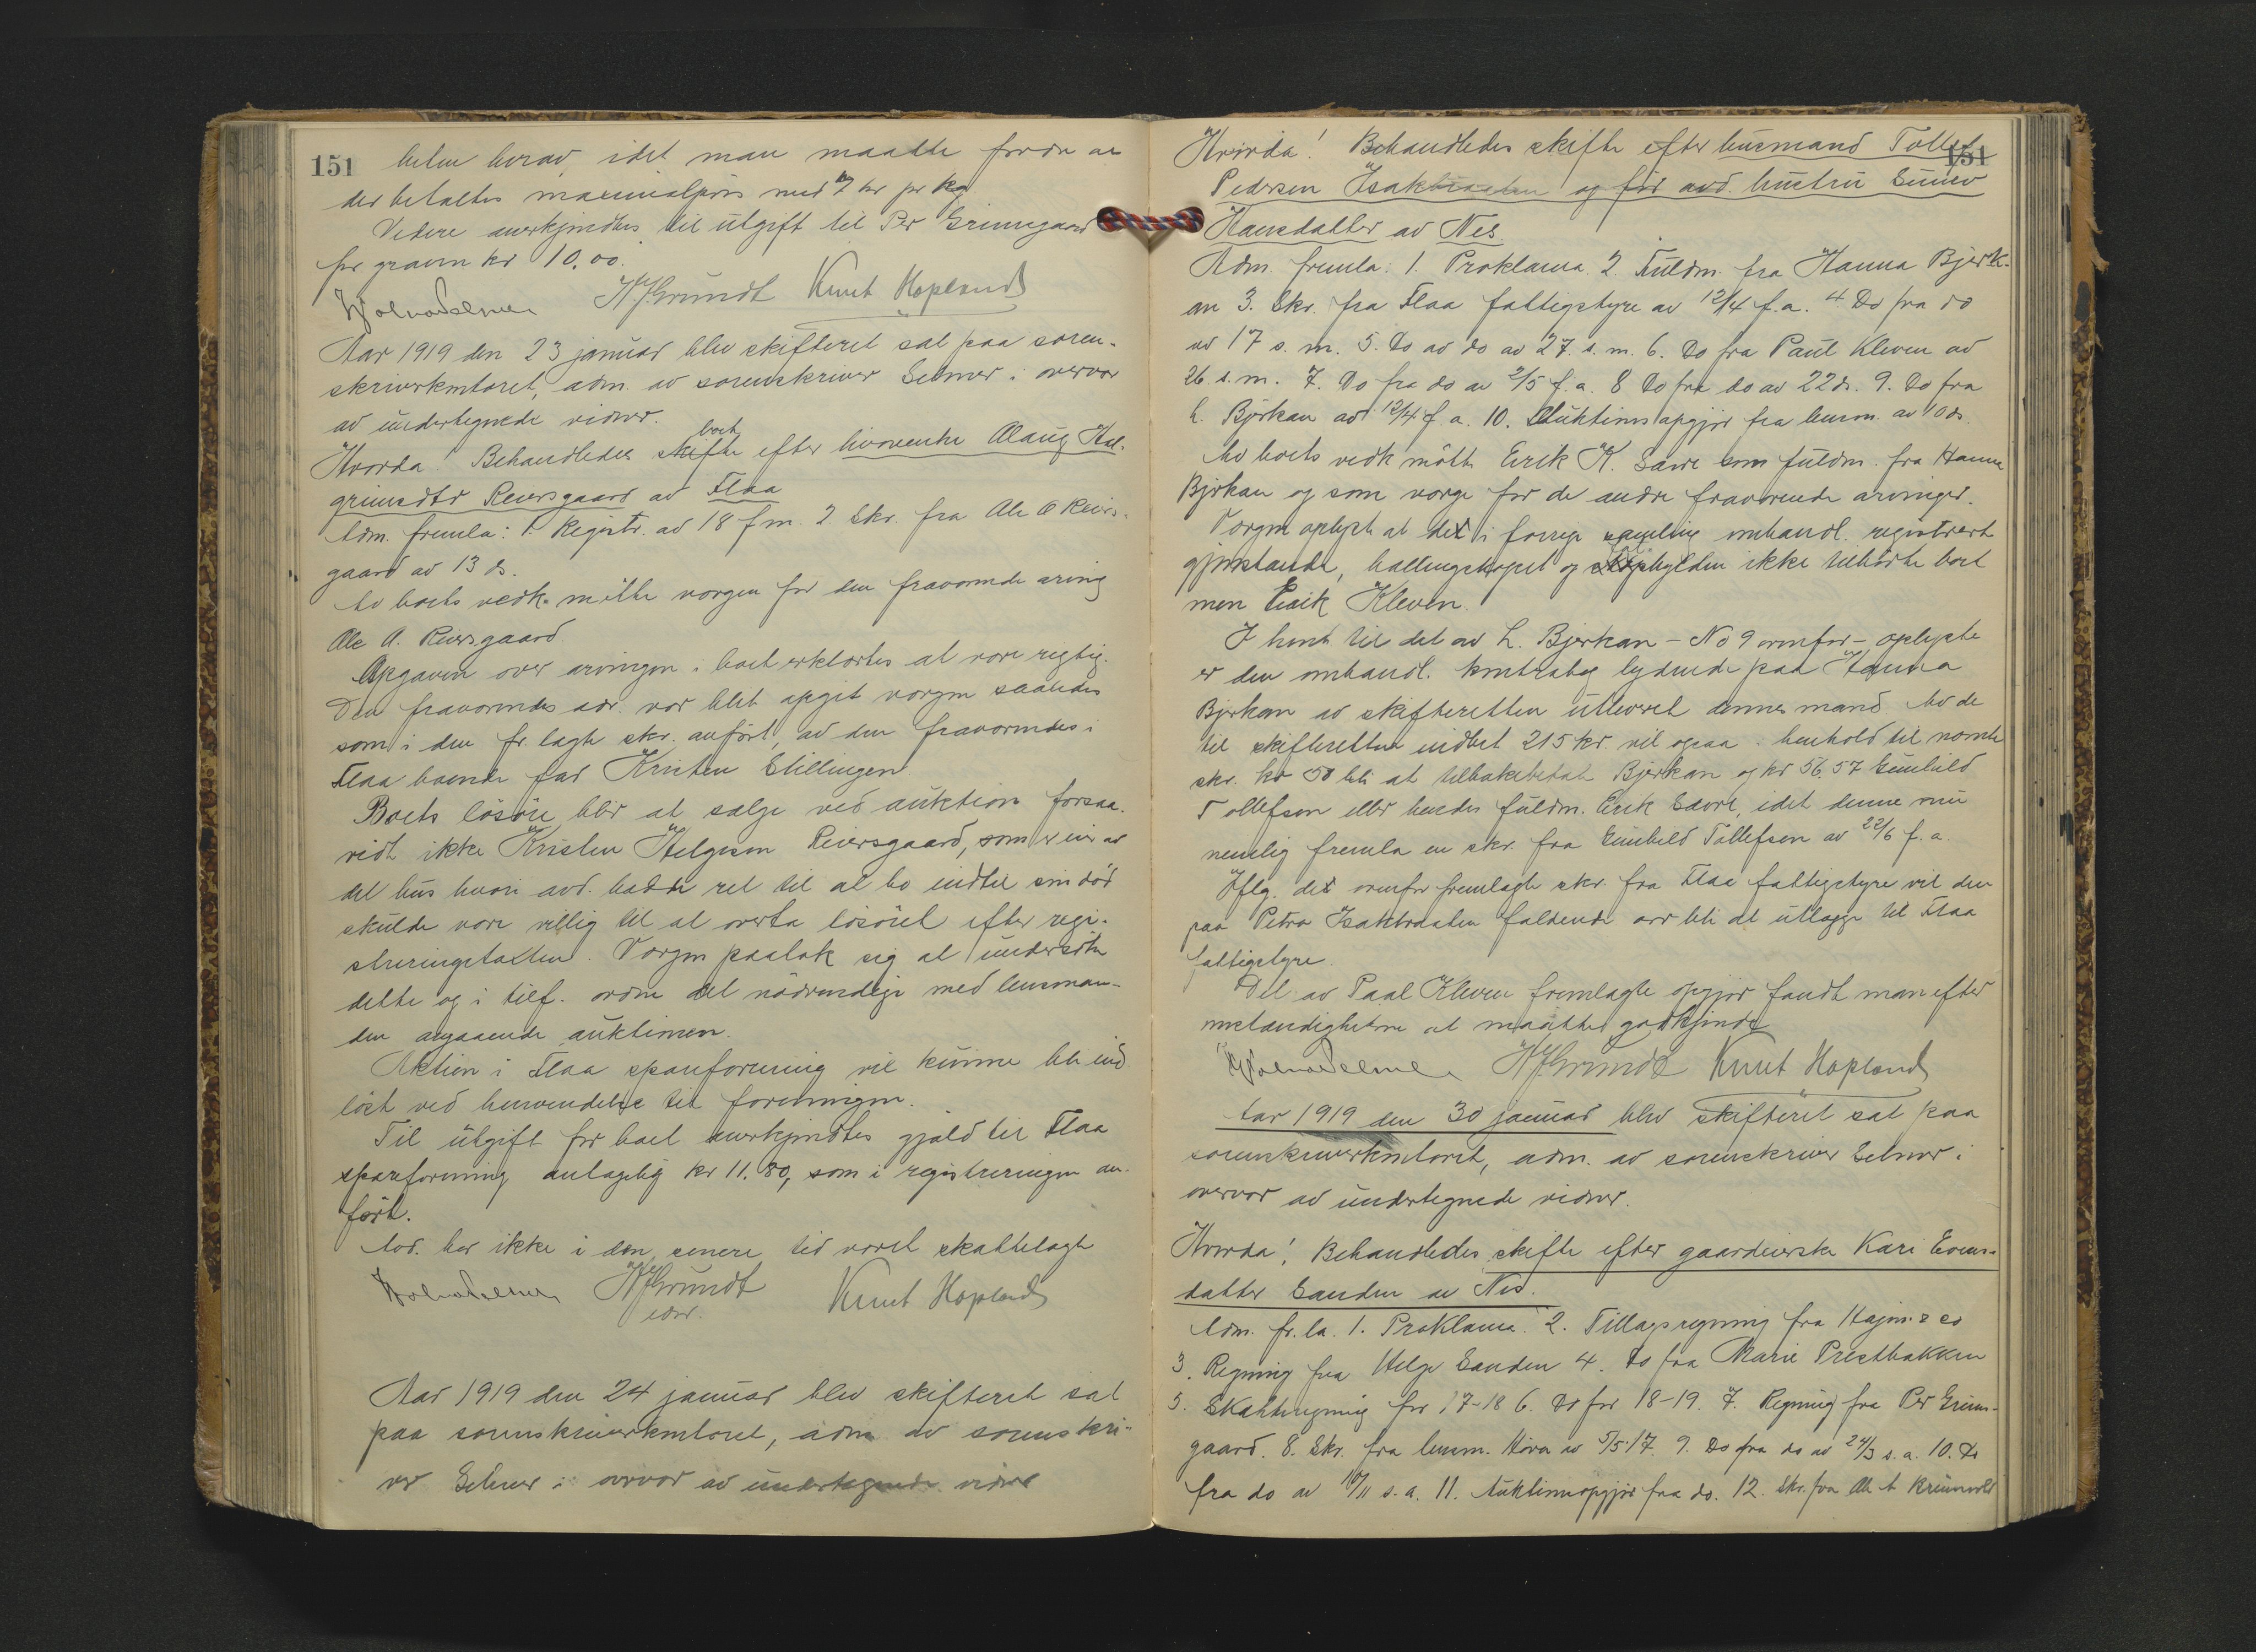 151
helen herav, idet man maatte fordre at
der betaltes maximalpris med 7 kr pr kg
Videre anerkjendtes til utgift til Per Grimsgaard
for graven kr 10.00.
Knut Hopland
Aar 1919 den 23 januar blev skifteret sat paa soren-
skriverkontoret, adm. av sorenskriver Selmer i overvær
av undertegnede vidner.
Hvorda! Behandledes boet efter livørenke Olaug Hal-
grimsdtr Reiersgaard av Flaa
Adm. fremla: 1. Registr. av 18 f m. 2 Skr. fra Ole O Reiers-
gaard av 13 ds.
Av boets vedk. mötte vergen for den fraværende arving
Ole A. Reiersgaard.
Opgaven over arvingen i boet erklærtes at være rigtig.
Den fraværendes adr. var blit opgit vergen saaledes
som i den fr.lagte skr. anført, av den fraværendes i
Flaa boende far Kristen Stillingen
Boets lösöre blir at sælge ved auktion forsaa-
vidt ikke Kristen Helgesen Reiersgaard, som er eier av
det hus hvori avd. hadde ret til at bo indtil sin död
skulde være villig til at overta lösöret efter regi-
streringstaksten. Vergen paatok sig at undersöke
dette og i tilf. ordne det nödvendige med lensman-
den angaaende auktionen.
Aktien i Flaa spareforening vil kunne bli ind-
löst ved henvendelse til foreningen.
Til utgift for boet anerkjendtes gjæld til Flaa
spareforening antagelig kr 11.80, som i registreringen an-
fört.
Avd. har ikke i den senere tid været skattelagt
Knut Hopland
Aar 1919 den 24 januar blev skifteret sat
paa sorenskriverkontoret, adm av sorenskri-
ver Selmer i overvær av undertegnede vidner
151
Hvorda! Behandledes skifte efter husmand Tollef
Pedersen Isakbraaten og før avd. hustru
Hansdatter av Nes.
Adm. fremla: 1. Proklama 2. Fuldm. fra Hanna Bjerk-
an 3. Skr. fra Flaa fattigstyre av 12/4 f.a. 4 Do fra do
av 17 s. m. 5. Do av do av 27. s. m. 6. Do fra Paul Kleven av
26 s. m. 7. Do fra do av 2/5 f. a. 8 Do fra do av 22 ds. 9. Do fra
L. Björkan av 12/4 f. a. 10. Auktionsopgjör fra lensm. av 10 ds.
Av boets vedk mötte Erik K. Sævre som fuldm. fra Hanna
Björkan og som verge for de andre fraværende arvinger.
Vergen oplyste at det i forrige samling omhandl. registrert
gjenstande, hallingskapet og ikke tilhörte boet
men Eraik Kleven.
I henh til det av L. Bjerkan – No 9 ovenfor – oplyste
er den omhandl. kontrabog lydende paa Hanna
Bjerkan av skifteretten utleveret dennes mand Av de
til skifteretten indbet 215 kr. vil ogsaa i henhold til nævnte
skr. kr 50 bli at tilbakebetale Bjerkan og kr 56.57 Gunhild
Tollefsen eller hendes fuldm. Erik Sævre, idet denne nu
nemlig fremla en skr. fra Gunhild Tollefsen av 22/6 f. a.
Iflg. det ovenfor fremlagte skr. fra Flaa fattigstyre vil den
paa Petra Isakbraaten faldende arv bli at utlægge til Flaa
fattigstyre.
Det av Paal Kleven fremlagte opgjør fandt man efter
omstændigheterne at maatte godkjende
Knut Hopland
Aar 1919 den 30 januar blev skifteret sat paa
sorenskriverkontoret, adm. av sorenskriver Selmer i
overvær av undertegnede vidner.
Hvorda! Behandledes skifte efter gaardeierske Kari Evens-
datter Sanden av Nes.
Adm. fr.la. 1. Proklama. 2. Tillægsregning fra & co
3. Regning fra Helge Sanden 4. Do fra Marie Prestbakken
5. Skatteregning for 17-18 6. Do for 18-19. 7. Regning fra Per Grims-
gaard. 8. Skr. fra lensm. av 5/5 17. 9. Do fra do av 24/3 s. a. 10. Do
fra do av 17/11 s. a. 11. Auktionsopgjör fra do. 12. Skr. fra